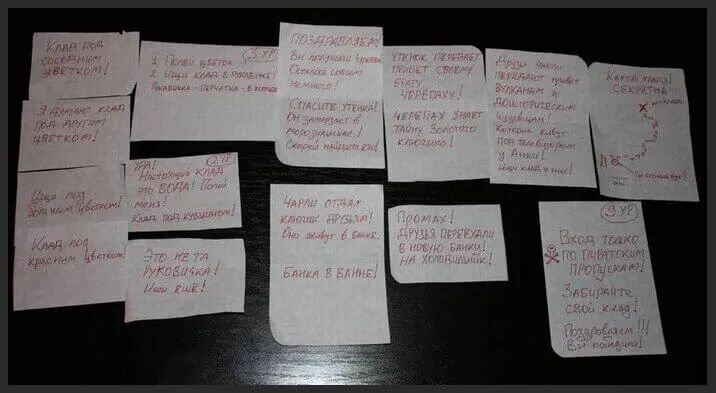 Клад под
соседним
цветком!
Я думаю клад
под другим
цветком!
Ищи под
большим цветком!
Клад под
красним цветком!
3 ур
1. Полей цветок
2. Ищи клад в рукавичке!
Рукавичка - перчатка - в
Ура! 2 ур
Настоящий клад
это вода! Полей
меня!
Клад под кувшином!
Это не та
руковичка!
Ищи ещё!
Поздравляем!
Вы получили
Осталось совсем
немного!
Спасите утенка!
Он замерзает в
морозильнике!
Скорей найдите его!
Чарли отдал
ключик друзьям!
Они живут в банке.
Банка в ванне!
Утенок передает
привет своему
брату
черепаху!
Черепах знает
тайну золотого
ключика!
Промах!
Друзья переехали
в новую банку!
На холодильник!
Друзья Чарли
передают привет
вулканам и
доисторическим
ящерицам!
Которые живут
под телевизором
у Аньки!
Ищи клад у них!
Карта клада!
Секретна
клад
Ты стоишь тут!
9 ур
Вход только
по пиратским
пропускам!
Забирайте
свой клад!
Поздровляем!!!
Вы победили!